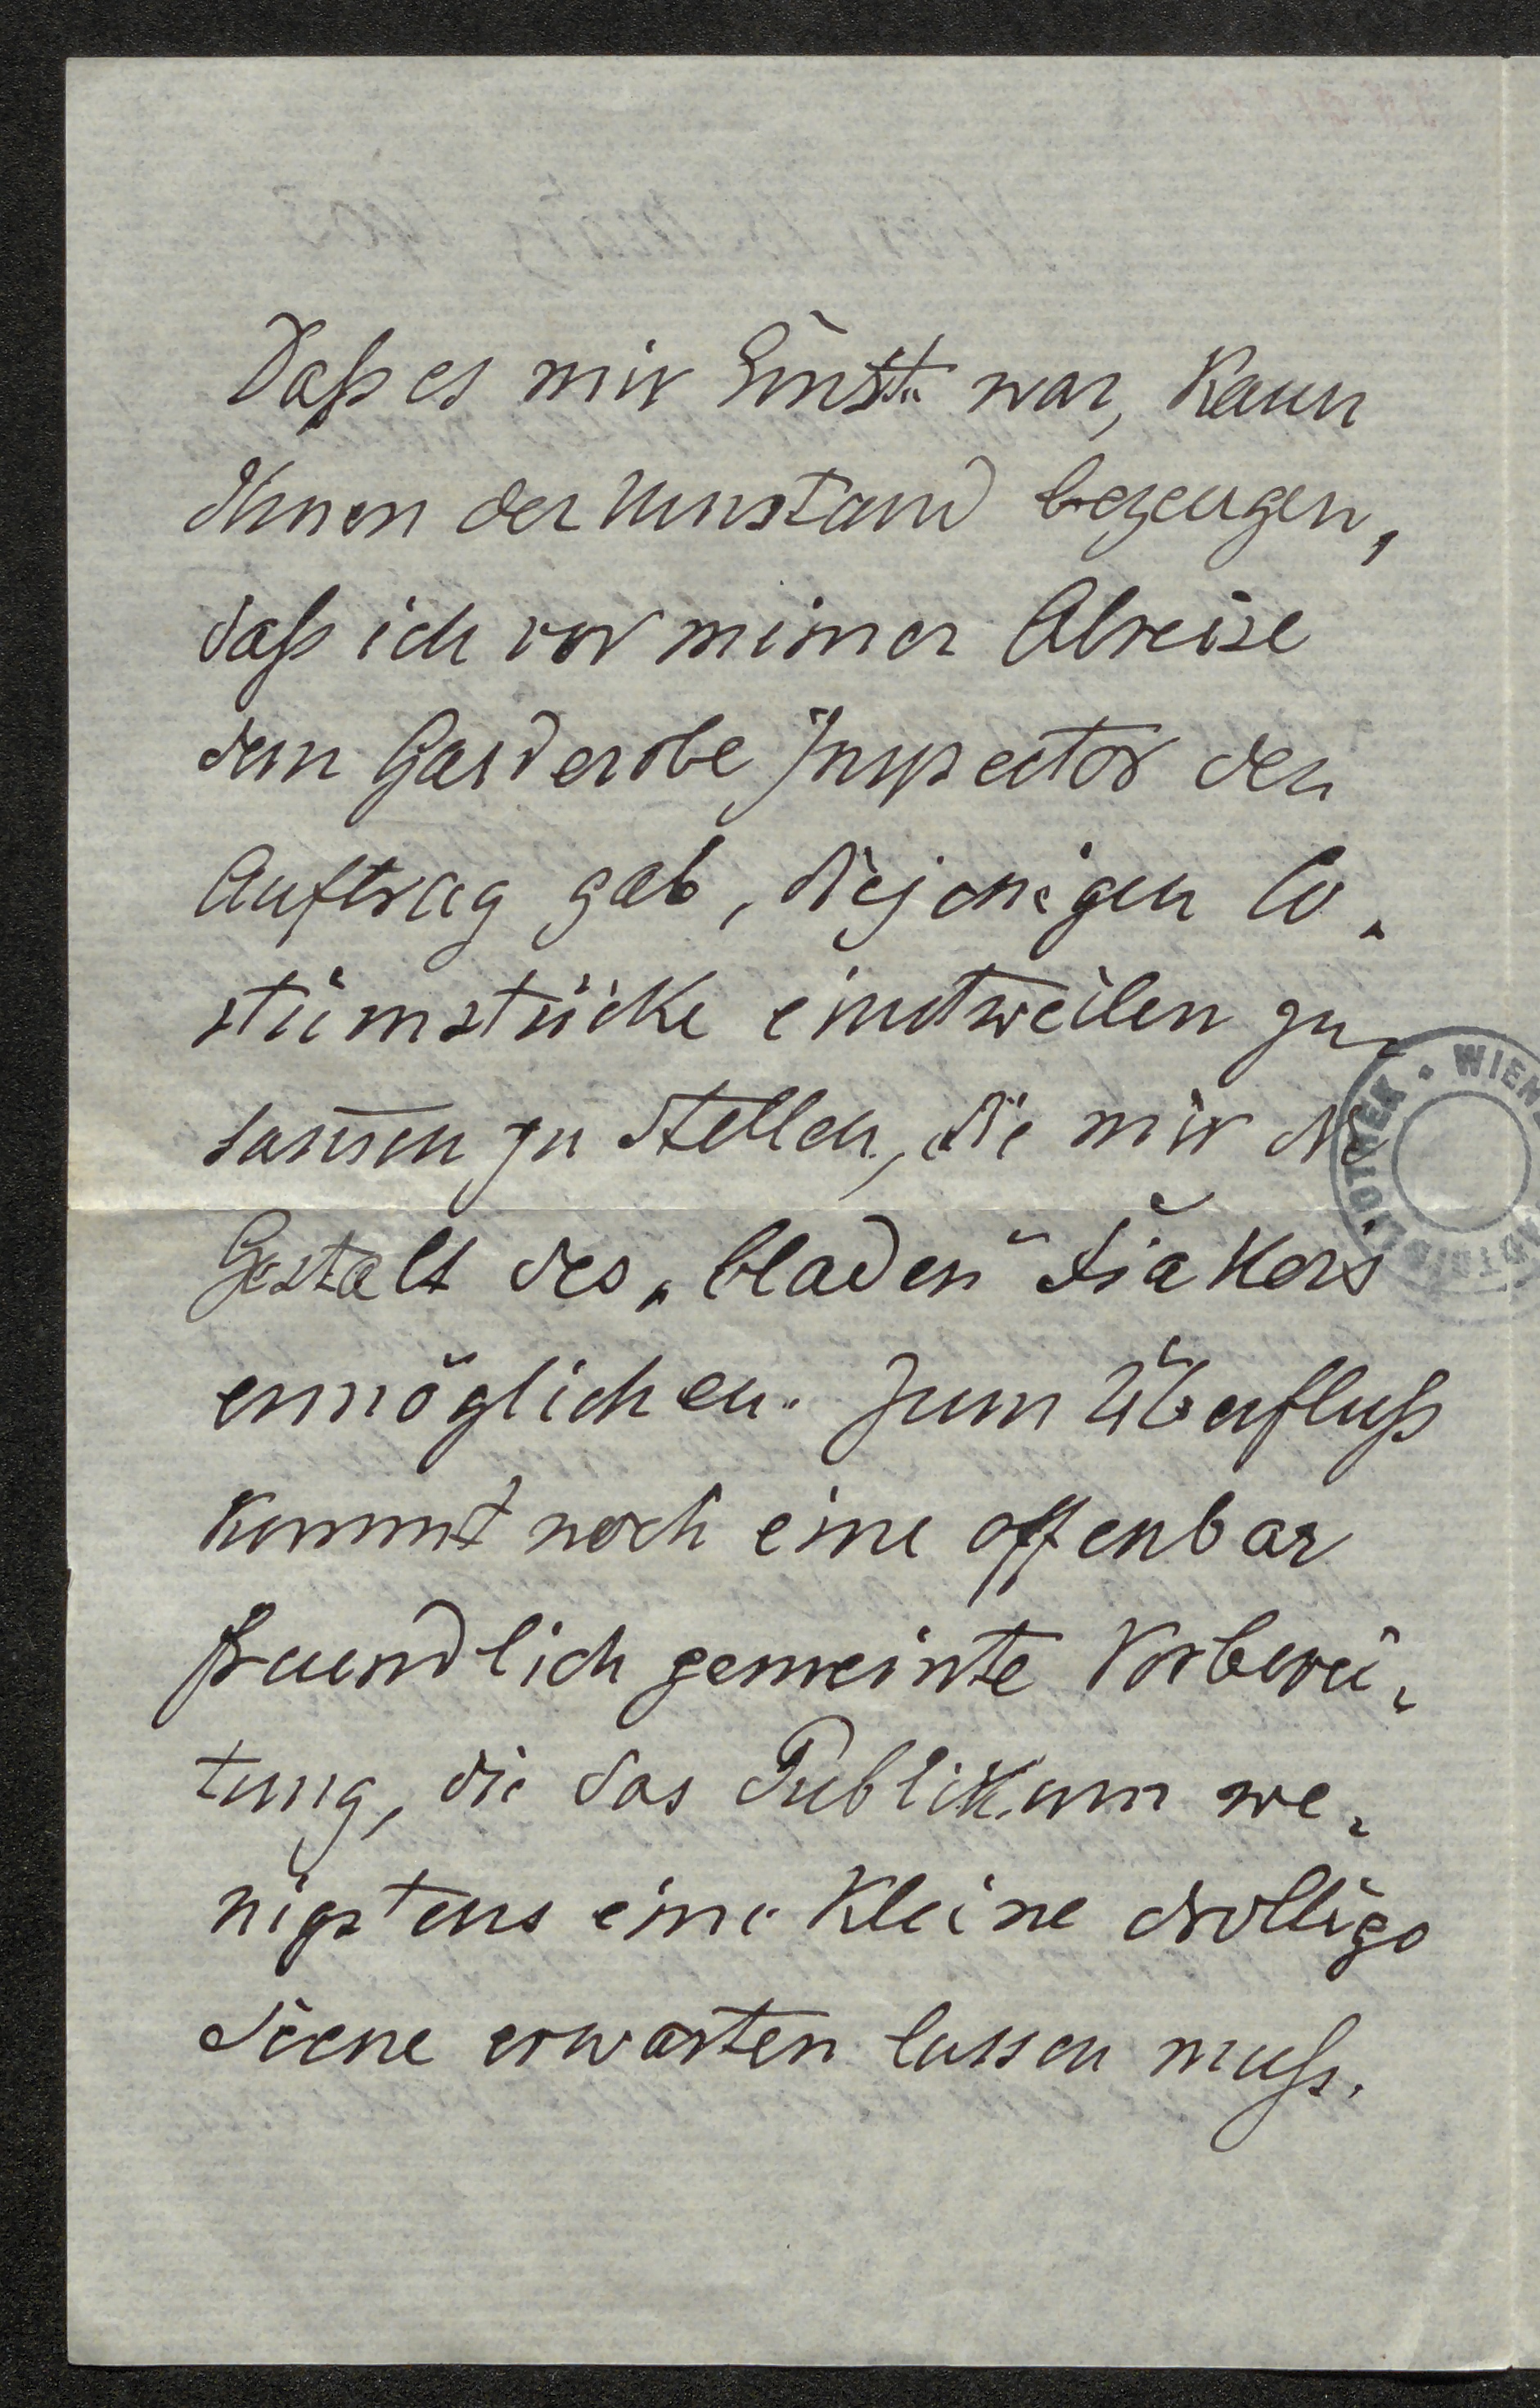 Daß es mir Ernst war, kann
Ihnen der Umstand bezeugen,
daß ich vor meiner Abreise
dem Garderobe Inspector den
Auftrag gab, diejenigen Co-
stümstücke einstweilen zu-
sam̅en zu stellen, die mir die
Gestalt des „bladen“ Fiakers
ermöglichen. Zum Überfluß
kommt noch eine offenbar
freundlich gemeinte Vorberei-
tung, die das Publikum we-
nigstens eine kleine drollige
Scene erwarten lassen muß.
WIEN